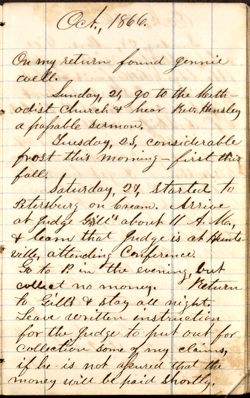 Oct, 1866.
On my return found Jennie
well.
Sunday, 21, go to the Meth-
odist Church & hear Rev. Hensley
a passable sermon.
Tuesday, 23, considerable
frost this morning – first this
fall.
Saturday, 27, started to
Petersburg on Cream. Arrive
at Judge Gill's about 11 A.M.,
& learn that Judge is at Hunts
ville, attending Conference.
Go to P. in the evening, but
collect no money. Return
to Gill's & stay all night.
Leave written instruction
for the Judge to put out for
collection some of my claims,
if he is not assured that the
money will be paid shortly.